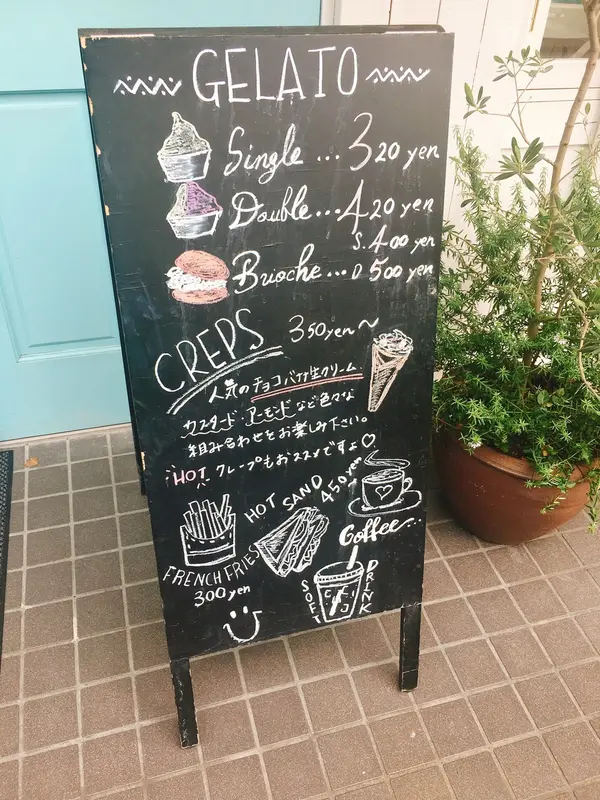 GELATO
Single ... 320 yen
Double ... 420 yen
S. 400 yen
Brioche ... D 500 yen
CREPS 350yen〜
人気のチョコバナナ生クリーム
カスタード アーモンドなど色々な
組み合わせをお楽しみ下さい。
HOT クレープもおススメですよ♡
HOT SAND 450yen
Coffee...
FRENCH FRIES
300yen
SOFT DRINK